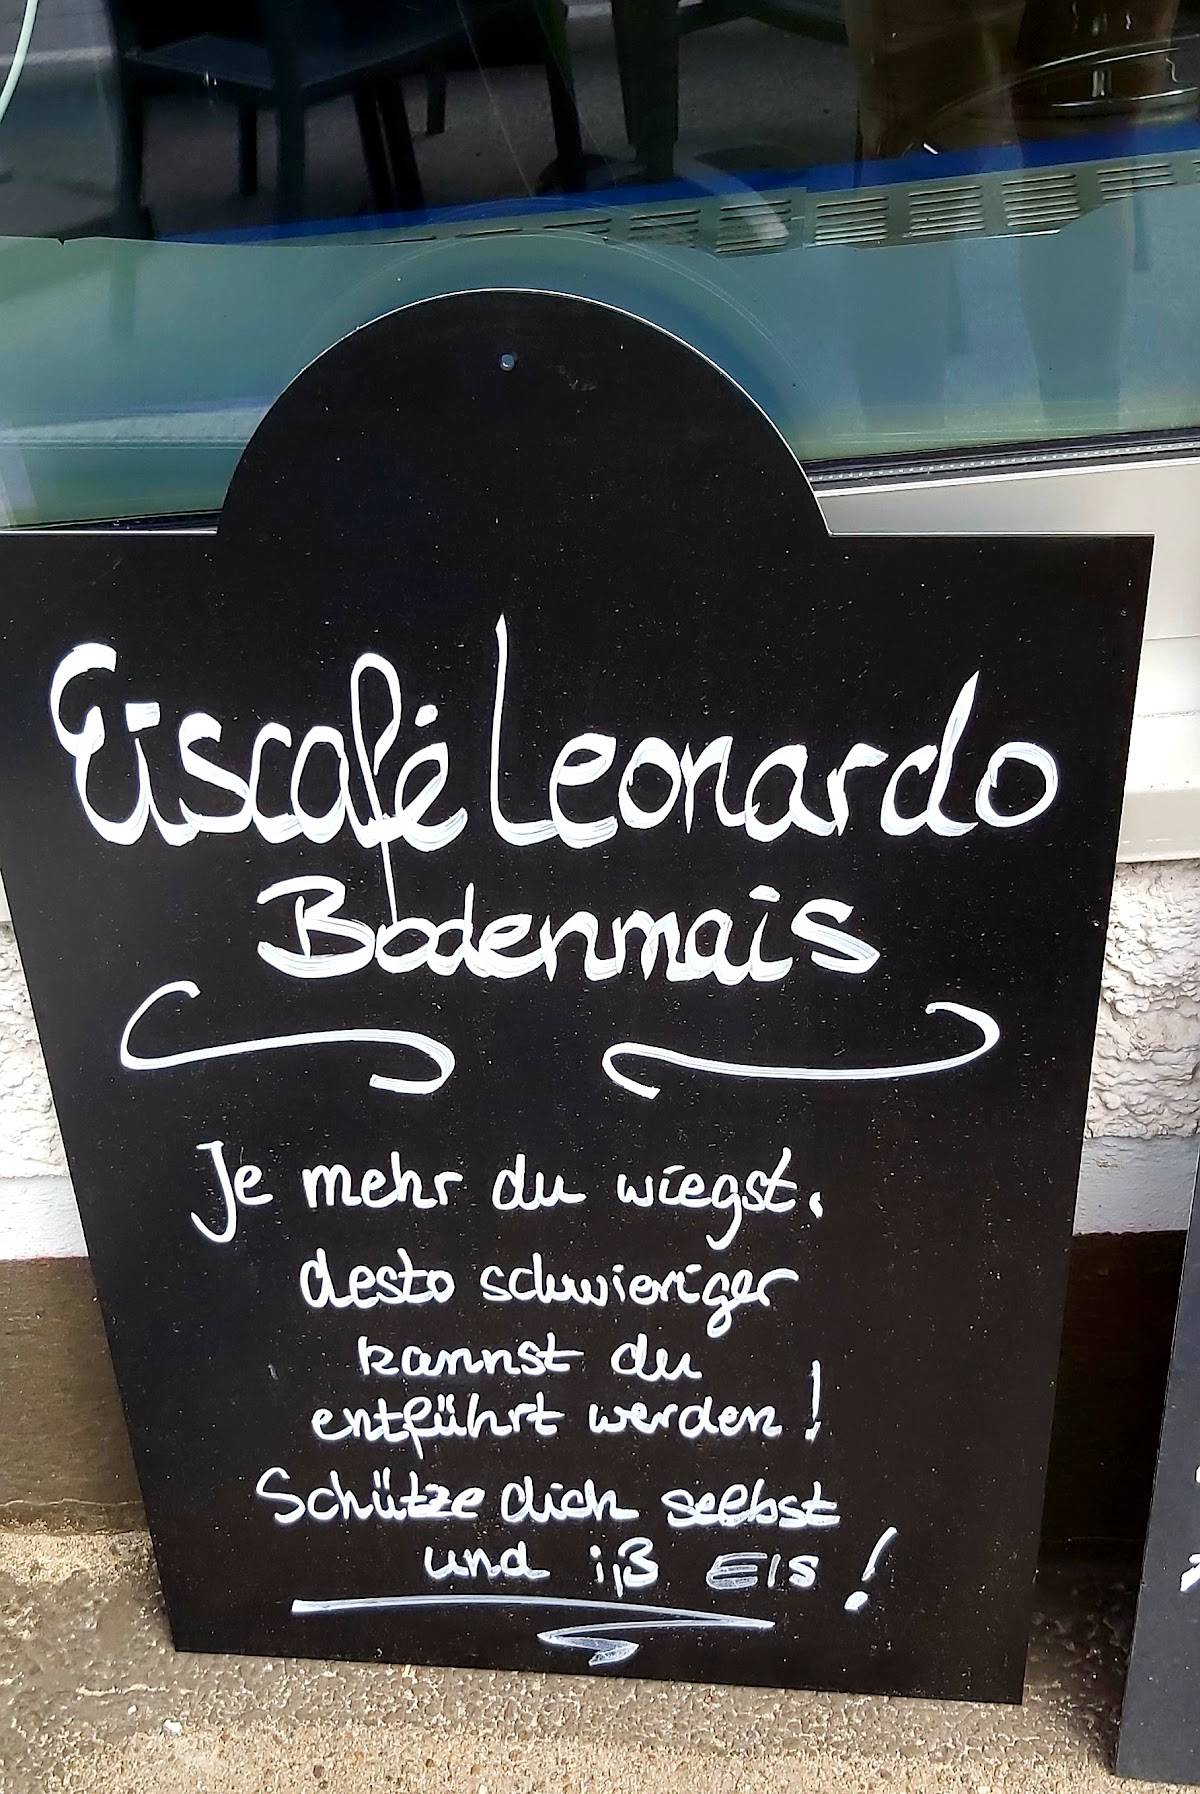 Eiscafé Leonardo
Bodenmais
Je mehr du wiegst,
desto schwieriger
kannst du
entführt werden!
Schütze dich selbst
und iß Eis!